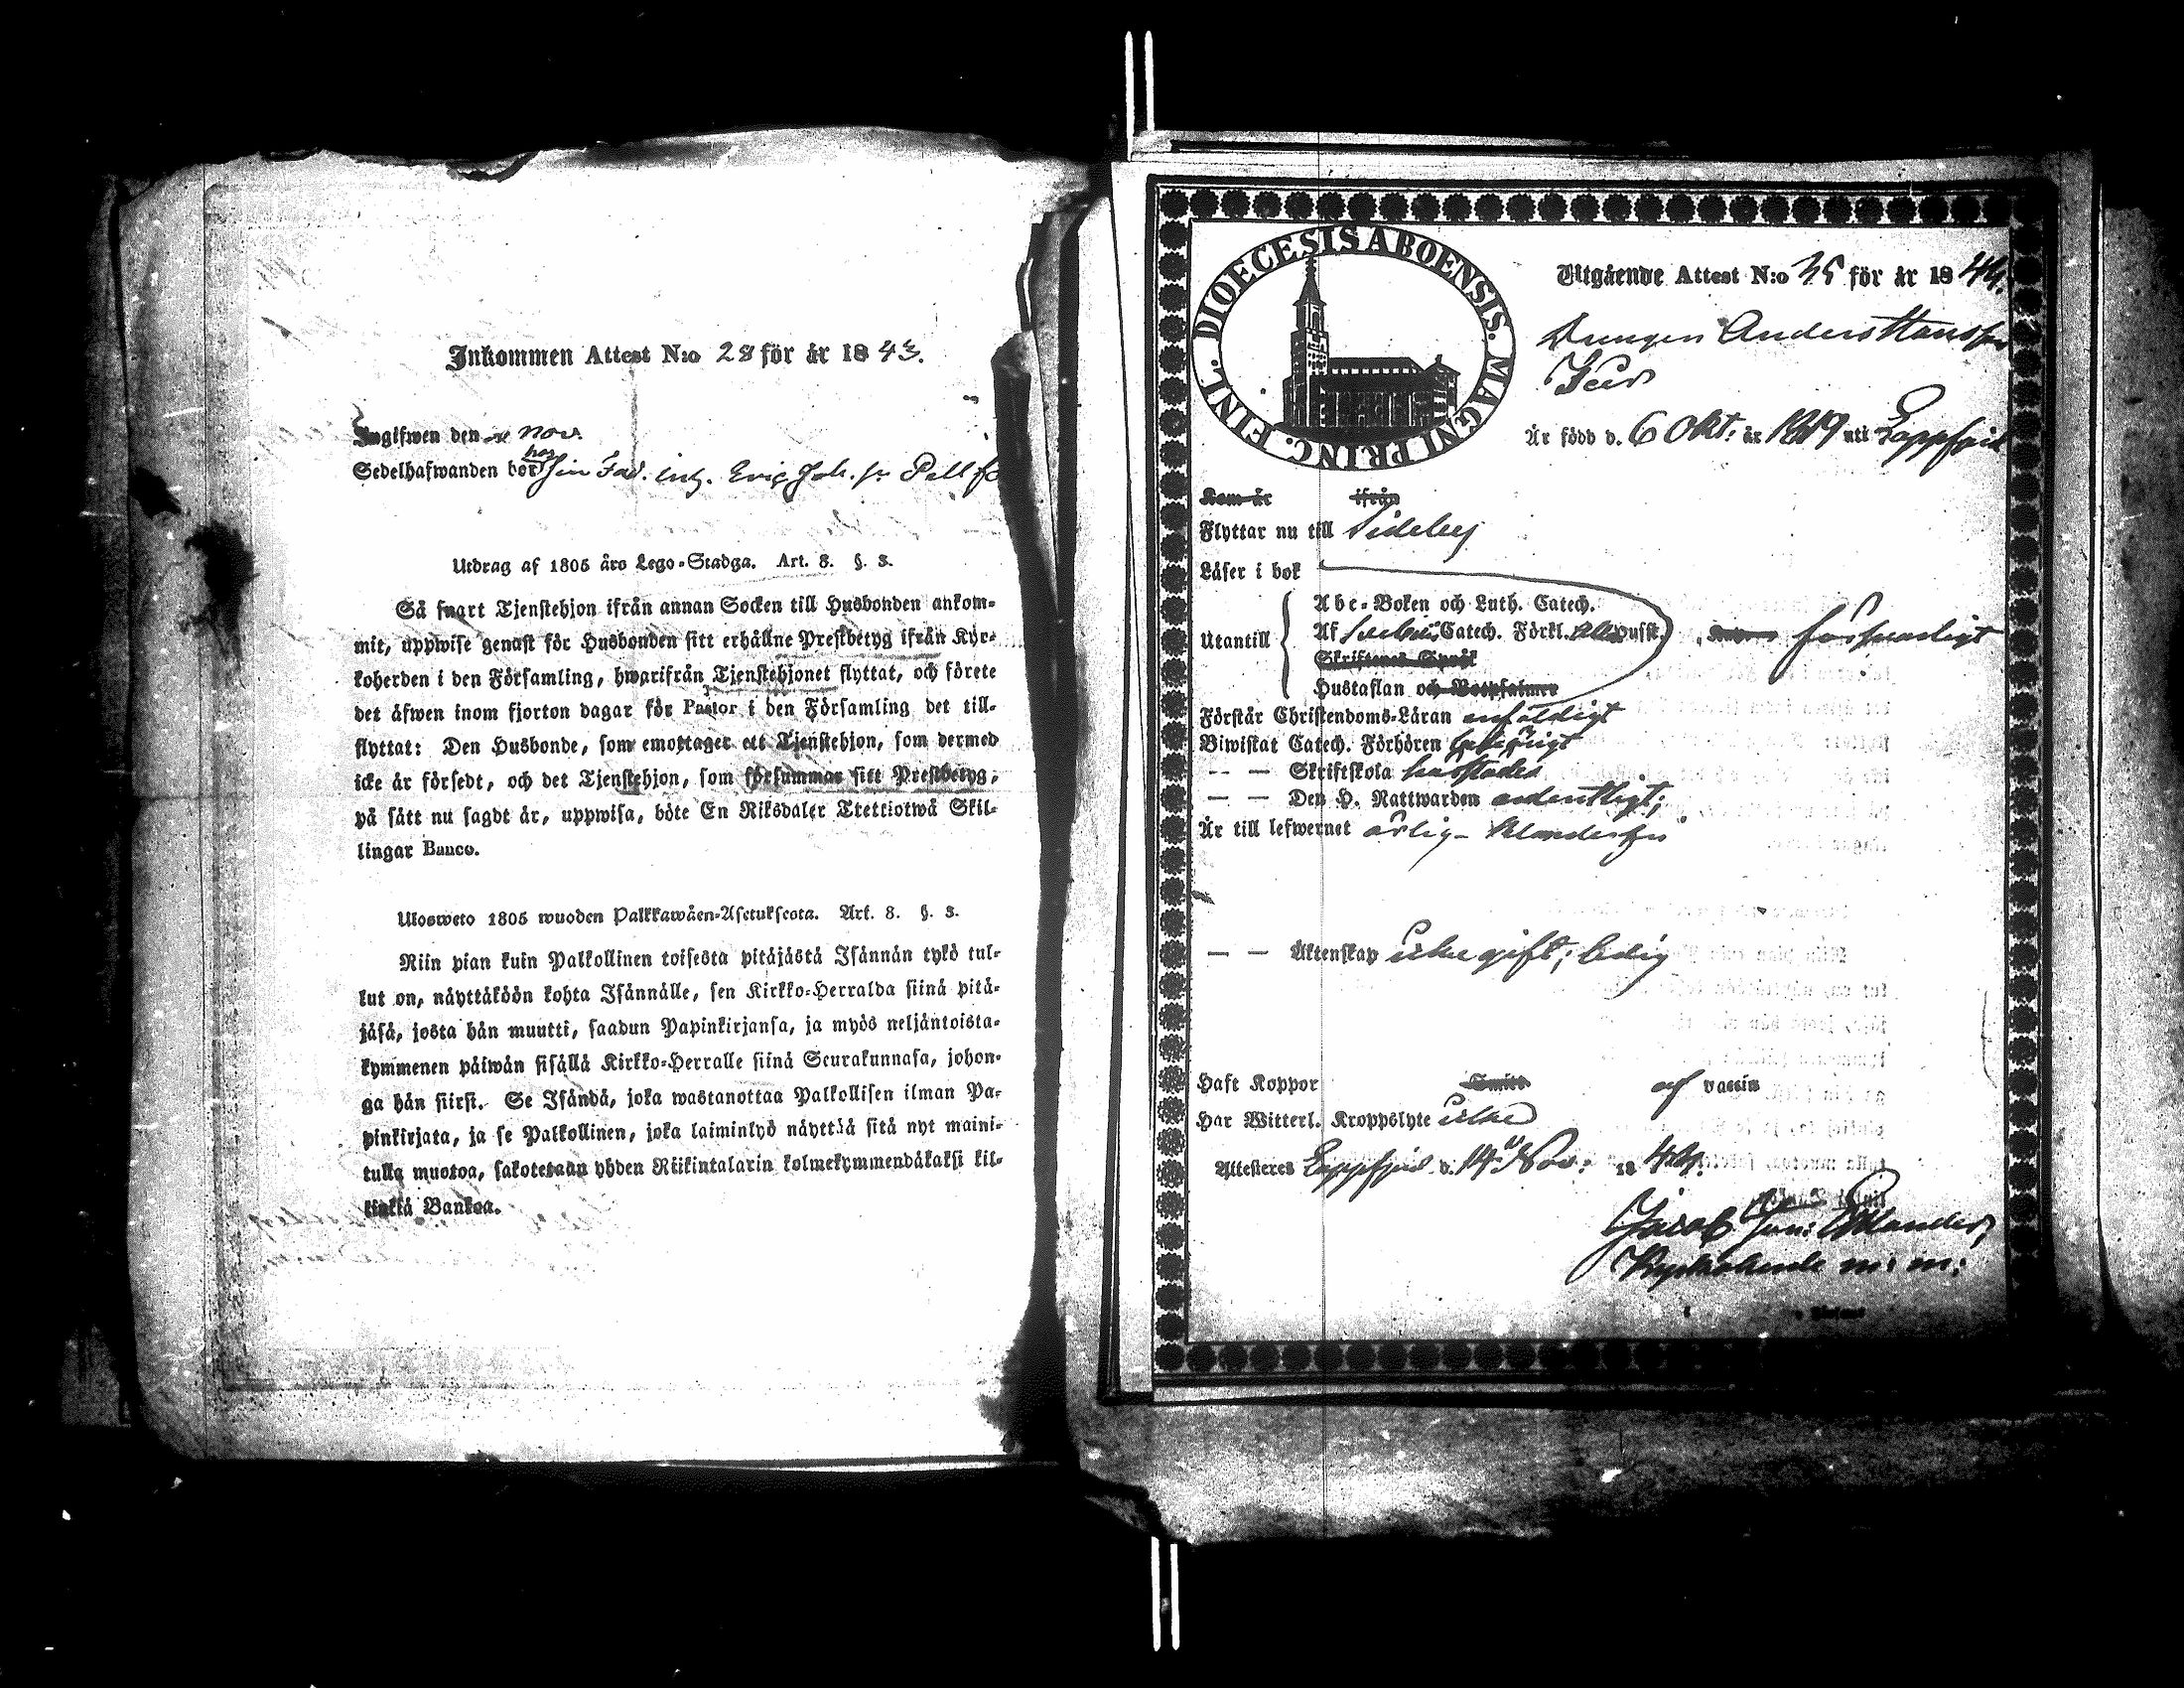 Inkommen Attest N:o 28 för år 1843.
Ingifwen den nov.
Sedelhafwanden bor hos Sin Fad. inh. Eric Joh. sn Pell
Utdrag af 1805 års Lego-Stadga. Art. 8. §. 3.
Så snart Tjenstehjon ifrån annan Socken till Husbonden ankom-
mit, uppwise genast för Husbonden sitt erhållne Prestbetyg ifrån Kyr-
koherden i den Församling, hwarifrån Tjenstehjonet flyttat, och förete
det äfwen inom fjorton dagar för Pastor i den Församling det till-
flyttat: Den Husbonde, som emottager ett Tjenstehjon, som dermed
icke är försedt, och det Tjenstehjon, som försummar sitt Prestbetyg,
på sätt nu sagdt är, uppwisa, böte En Riksdaler Trettiotwå Skil-
lingar Banco.
Ulosweto 1805 wuoden Palkkawäen-Asetuksesta. Art. 8. §. 3.
Niin pian kuin Palkollinen toisesta pitäjästä Isännän tykö tul-
lut on, näyttäköön kohta Isännälle, sen Kirkko-Herralda siinä pitä-
jäsä, josta hän muutti, saadun Papinkirjansa, ja myös neljäntoista-
kymmenen päiwän sisällä Kirkko-Herralle siinä Seurakunnasa, johon-
ga hän siirsi. Se Isändä, joka wastanottaa Palkollisen ilman Pa-
pinkirjata, ja se Palkollinen, joka laiminlyö näyttää sitä nyt maini-
tulla muotoa, sakotetaan yhden Riikintalarin kolmekymmendäkaksi kil-
linkiä Bankoa.
DIOECESIS ABOENSIS. MAGNI PRINC. FINL.
Utgående Attest N:o 35 för år 1844.
Drengen Anders Hansson
Är född d. 6 Okt: år 1819 uti Lappfjärd
Kom år ifrån
Flyttar nu till Sideby
Läser i bok
Abc-Boken och Luth. Catech.
Utantill Af Svebilii Catech. Förkl. Alla Pusst. försvarligt
Skriftenes Språk
Hustaflan och Botpsalmer
Förstår Christendoms-Läran enfäldigt
Biwistat Catech. Förhören
— — Skriftskola
— — Den H. Nattwarden ordentligt;
Är till lefwernet ärlig
— — Äktenskap icke gift; ledig
Haft Koppor Smitt af vaccin
Har Witterl. Kroppslyte icke
Attesteras Lappfjärd d. 14 Nov: 1844.
Jacob Joh:
Kyrkoherde m: m: